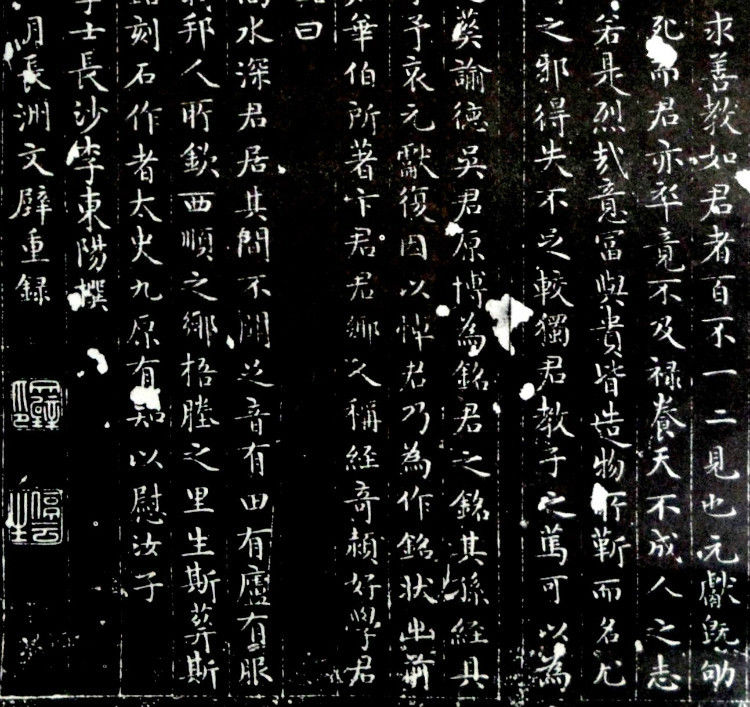 求善教如君者百不一二見也元獻既劬
死而君亦卒竟不及祿養天不成人之志
若是烈哉意富與貴皆造物所靳而名尤
之邪得失不足較獨君教子之篤可以為
葬諭德吳君原博為銘君之銘其孫經具
予哀元獻復因以悼君乃為作銘狀出前
華伯所著卞君君鄉人稱經奇穎好學君
曰
水深君居其間不聞足音有田有廬有服
邦人所欽西順之鄉梧塍之里生斯葬斯
刻石作者太史九原有知以慰汝子
學士長沙李東陽撰
月長洲文壁重録
停雲